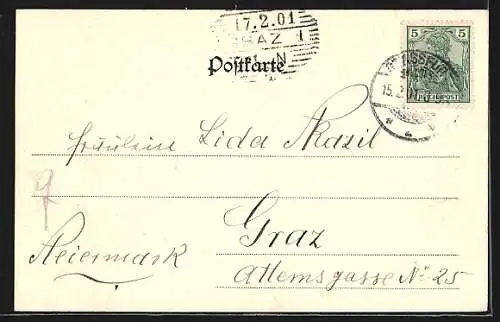 17.2.01
GRAZ 1
Postkarte
5 5
REICHSPOST
15.2.01
Fräulein Lida Skazil
Graz
Steiermark
Attemsgasse No 25